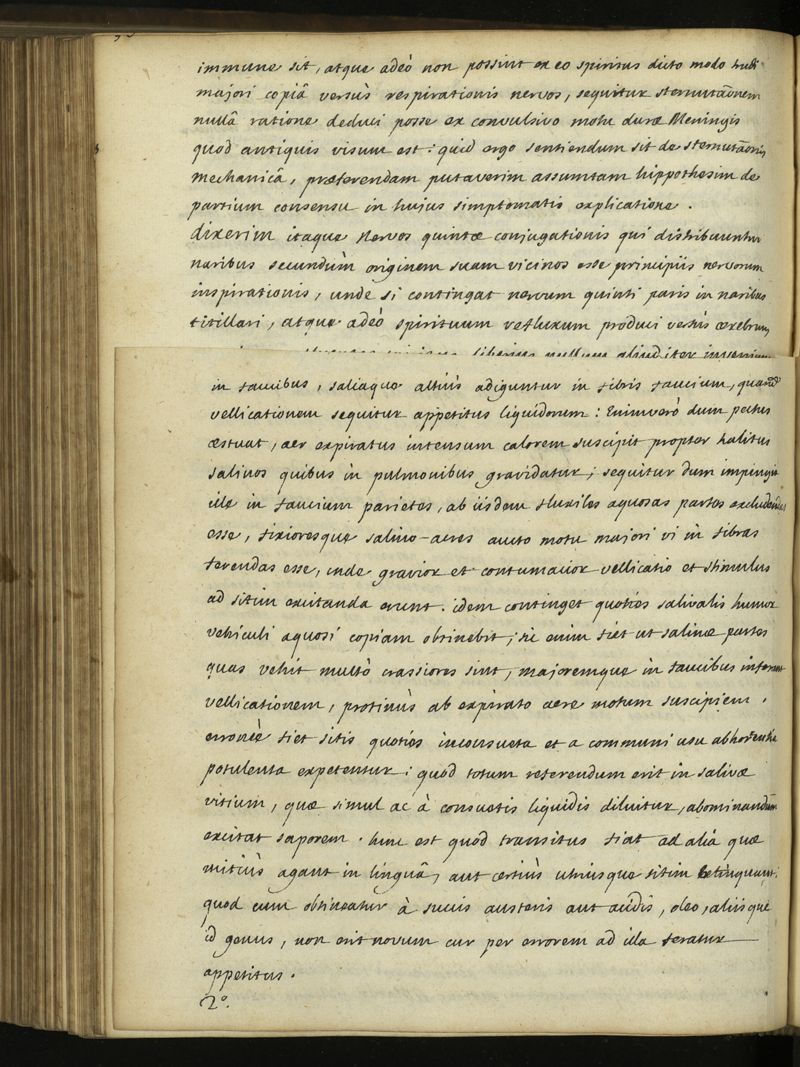 immune sit, atque adeò non possint ex eo spiritus dicto modo trudi
majori copiâ versùs respirationis nervos, sequitur sternutãonem
nullâ ratione deduci posse ex convulsivo motu duræ Meningis
quod antiquis visum est: quid ergo sentiendum sit de sternutãonis
mechanicâ, præferendam putaverim assumtam hippothesim de
partium consensu in hujus simptomatis explicatione.
dixerim itaque Nervos quintæ conjugationis qui distribuuntur
naribus secundùm originem suam vicinos esse principiis nervorum
inspirationis, unde si contingat nervum quinti paris in naribus
titillari, atque adeò spirituum refluxum produci versùs cerebrum,
in faucibus, saliaque altiùs adiguntur in fibris faucium, quand
vellicationem sequitur appetitus liquidorum: Enimverò dum pectus
æstuat, aer expiratus intensum calorem suscipit propter halitus
salinos quibus in pulmonibus gravidatur; sequitur dum impingit
ille in faucium parietes, ab iisdem fluxiles aquosas partes excludendas
esse, fixioresque salino-acres aucto motu majori vi in fibras
ferendas esse, inde gravior et contumacior vellicatio et stimulus
ad sitim excitanda erunt. idem continget quoties salivalis humor
vehiculi aquosi copiam obtinebit; sic enim fiet ut salinæ partes
quas vehit multò crassiores sint, majoremque in faucibus inferant
vellicationem, protinùs ab expirato aere motum suscipiem.
erronée fiet sitis quoties inconsueta et a communi usu abhorrentia
potulenta expetentur: quod totum referendum erit in salivæ
vitium, quæ simul ac à consuetis liquidis diluitur, abominandum
excitat saporem. hinc est quod transitus fiat ad alia quæ
mitiùs agant in linguâ, aut certiùs utriusque sitim relinquant:
quod cum obtineatur à succis austeris aut acidis, oleo, aliisque
id genus, non erit novum cur per errorem ad illa feratur
appetitus.
2º.